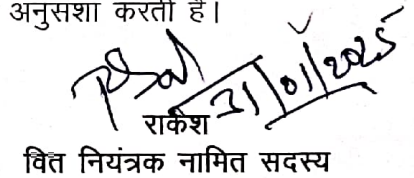 अनुसशा करती है।
31/01/2025
राकेश
वित नियंत्रक नामित सदस्य